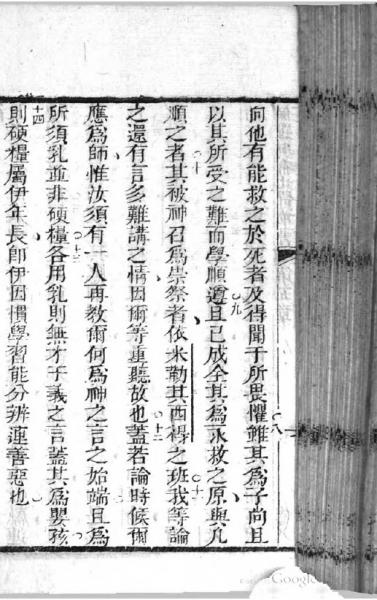 向他有能救之於死者及得聞于所畏懼八雖其爲子尚且
以其所受之難而學順遵九且已成全其爲永救之原與凡
順之者十其被神召爲崇祭者依米勒其西得之班我等論
之還有言多難講之情因爾等重聽故也十二蓋若論時候爾
應爲師惟汝須有一人再教爾何爲神之言之始端且爲
所須乳並非硬糧十三各用乳則無才于義之言蓋其爲嬰孩
十四則硬糧屬伊年長即伊因慣學習能分辨連善惡也
Google